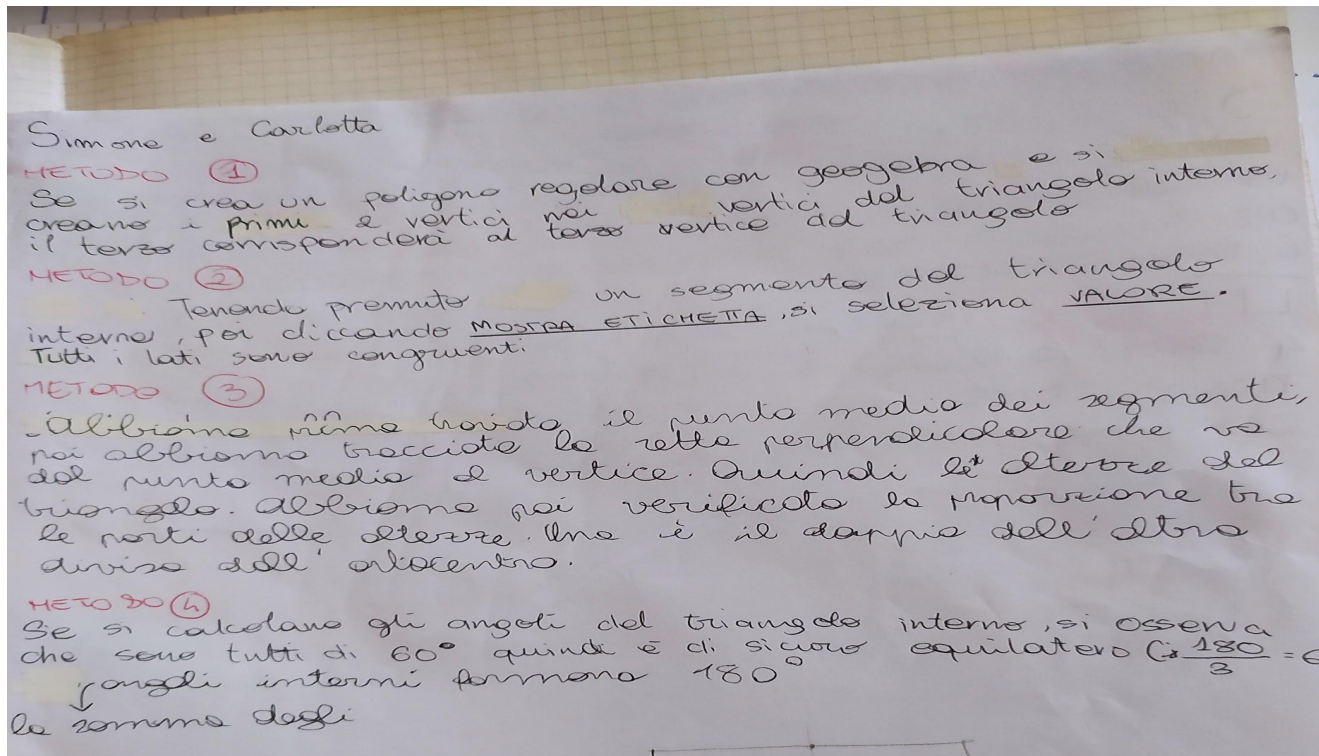 Simone e Carlotta
METODO 1
Se si crea un poligono regolare con geogebra e si
creano i primi 2 vertici nei vertici del triangolo interno,
il terzo corrisponderà al terzo vertice del triangolo
METODO 2
Tenendo premuto un segmento del triangolo
interno, poi cliccando MOSTRA ETICHETTA, si seleziona VALORE.
Tutti i lati sono congruenti.
METODO 3
-Abbiamo prima trovato il punto medio dei segmenti,
poi abbiamo tracciato la retta perpendicolare che va
dal punto medio al vertice. Quindi le altezze del
triangolo. Abbiamo poi verificato la proporzione tra
le parti delle altezze. Una è il doppio dell'altra
divisa dall'ortocentro.
METODO 4
Se si calcolano gli angoli del triangolo interno, si osserva
che sono tutti di 60° quindi è di sicuro equilatero (: 180/3 = 6
angoli interni formano 180°
la somma degli